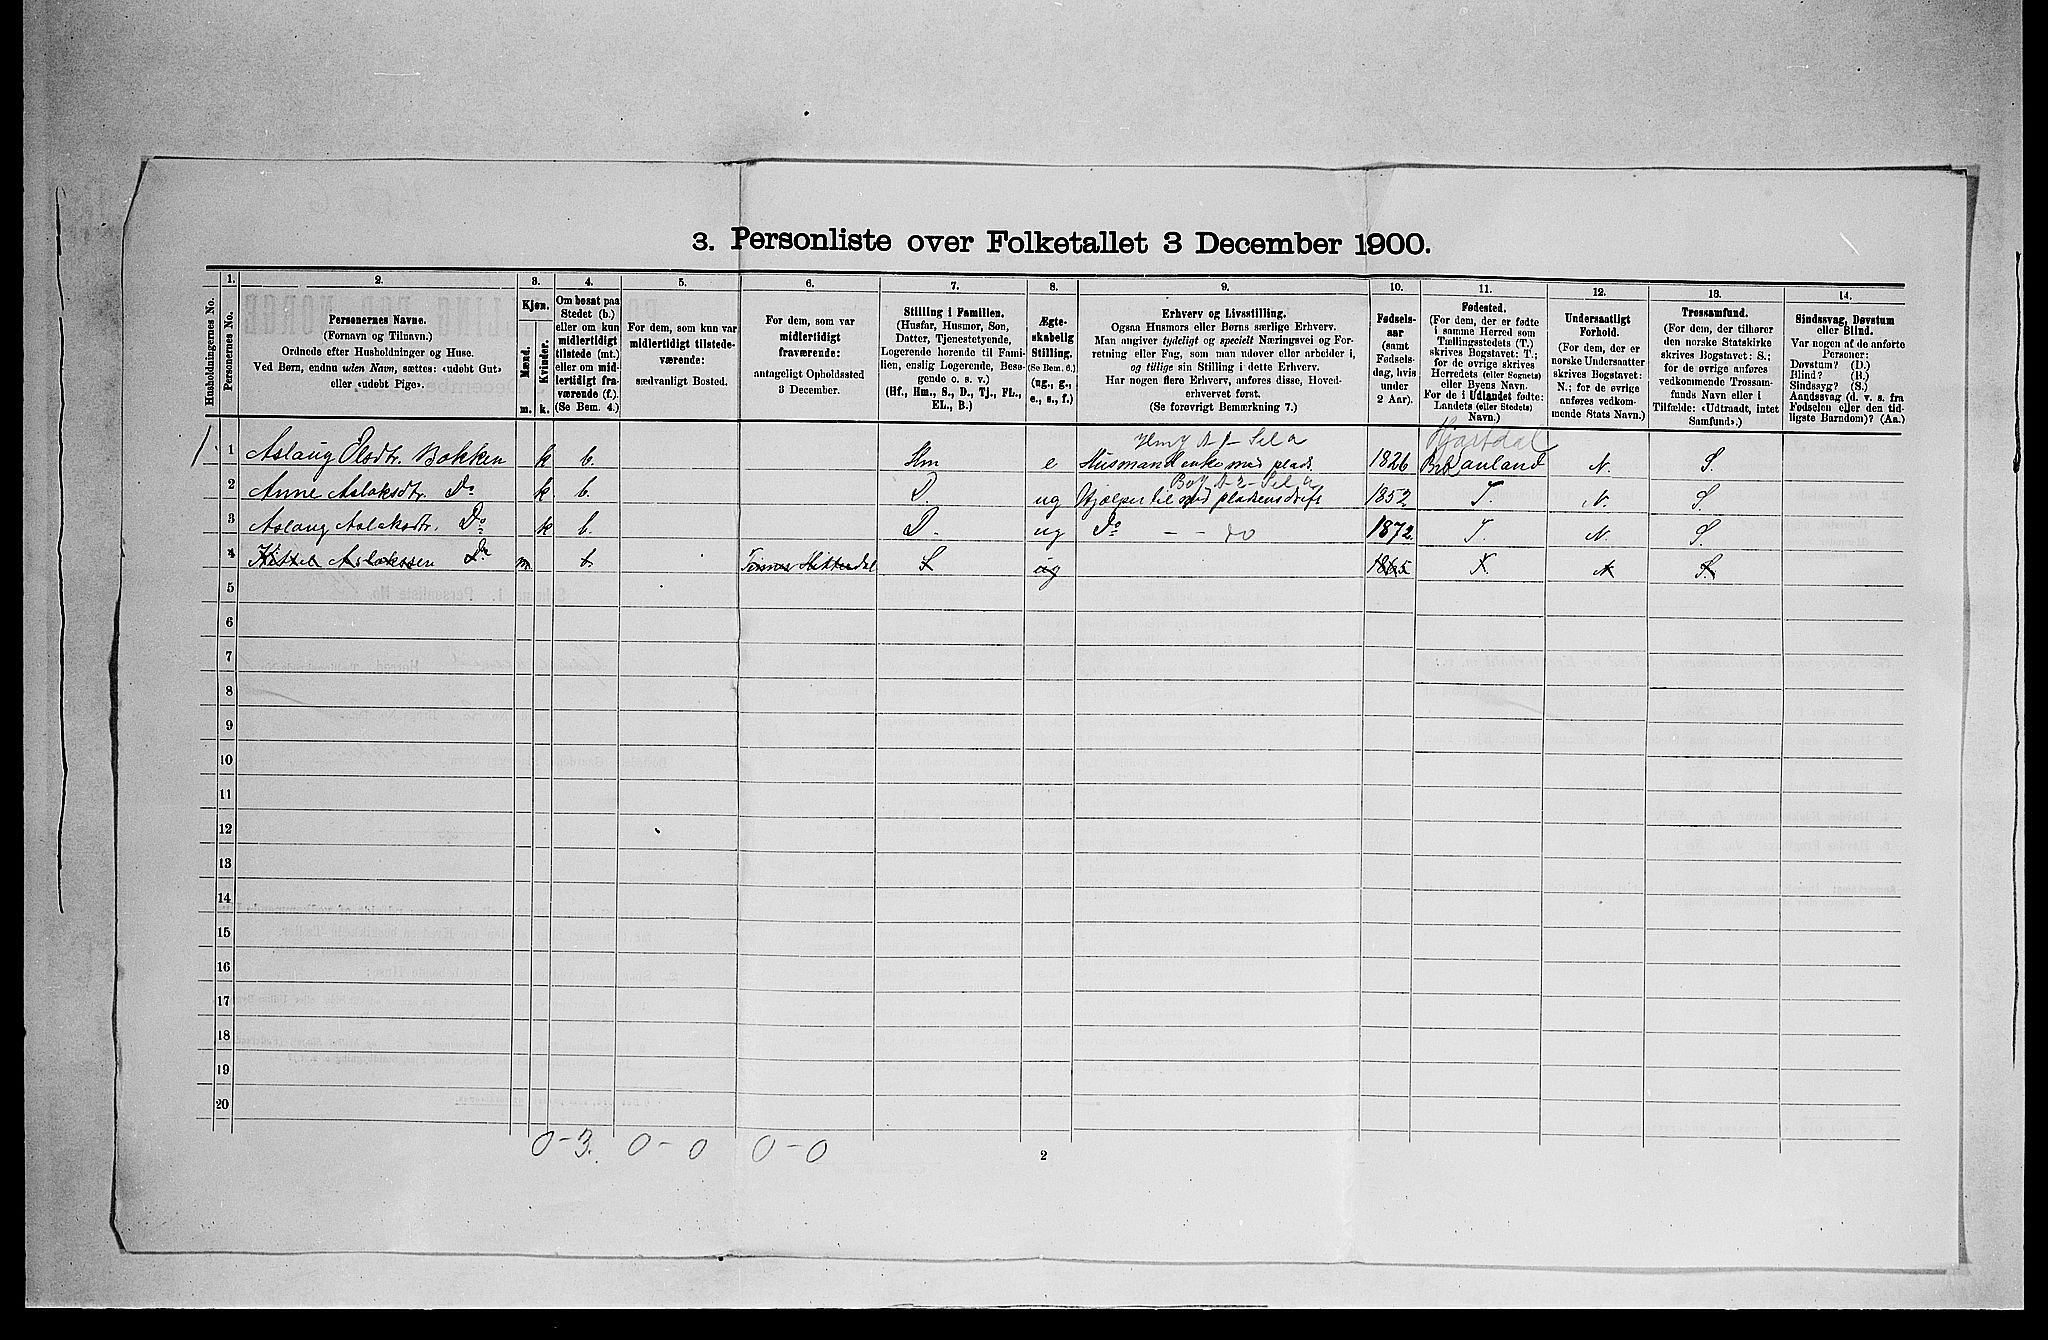 3. Personliste over Folketallet 3 December 1900.
Husholdningernes No.
1.
Personernes No.
2.
Personernes Navne.
(Fornavn og Tilnavn.)
Ordnede efter Husholdninger og Huse.
Ved Børn, endnu uden Navn, sættes: «udøbt Gut»
eller «udøbt Pige».
3.
Kjøn.
Mænd.
Kvinder.
m.
k.
4.
Om bosat paa
Stedet (b.)
eller om kun
midlertidigt
tilstede (mt.)
eller om mid-
lertidigt fra-
værende (f.).
(Se Bem. 4.)
5.
For dem, som kun var
midlertidigt tilstede-
værende:
sædvanligt Bosted.
6.
For dem, som var
midlertidigt
fraværende:
antageligt Opholdssted
3 December.
7.
Stilling i Familien.
(Husfar, Husmor, Søn,
Datter, Tjenestetyende,
Logerende hørende til Fami-
lien, enslig Logerende, Besø-
gende o. s. v.)
(Hf., Hm., S., D., Tj., FL.,
EL., B.)
8.
Ægte-
skabelig
Stilling.
(Se Bem. 6.)
(ug., g.,
e., s., f.)
9.
Erhverv og Livsstilling.
Ogsaa Husmors eller Børns særlige Erhverv.
Man angiver tydeligt og specielt Næringsvei og For-
retning eller Fag, som man udøver eller arbeider i,
og tillige sin Stilling i dette Erhverv.
Har nogen flere Erhverv, anføres disse, Hoved-
erhvervet først.
(Se forøvrigt Bemærkning 7.)
10.
Fødsels-
aar
(samt
Fødsels-
dag, hvis
under
2 Aar).
11.
Fødested.
(For dem, der er fødte
i samme Herred som
Tællingsstedets (T.)
skrives Bogstavet: T.;
for de øvrige skrives
Herredets (eller Sognets)
eller Byens Navn.
For de i Udlandet fødte:
Landets (eller Stedets)
Navn.)
12.
Undersaatligt
Forhold.
(For dem, der er
norske Undersaatter
skrives Bogstavet:
N.; for de øvrige
anføres vedkom-
mende Stats Navn.)
13.
Trossamfund.
(For dem, der tilhører
den norske Statskirke
skrives Bogstavet: S.;
for de øvrige anføres
vedkommende Trossam-
funds Navn eller i
Tilfælde: «Udtraadt, intet
Samfund».)
14.
Sindssvag, Døvstum
eller Blind.
Var nogen af de anførte
Personer:
Døvstum? (D.)
Blind? (B.)
Sindssyg? (S.)
Aandssvag (d. v. s. fra
Fødselen eller den tid-
ligste Barndom)? (Aa.)
Hjartdal
1 1 Aslaug Olsdtr. Bakken k b. Hm e Husmandsenke med plads. 1826 Bræanland N. S.
2 Anne Aslaksdtr. Do k b. D. ug Hjælper til med pladsens drift 1852 T. N. S.
3 Aslaug Aslaksdtr. Do k b. D. ug Do - - do 1872. T. N. S.
4 Kittel Aslaksen Do m. f. Hitterdal S ug 1865 T. N S.
5
6
7
8
9
10
11
12
13
14
15
16
17
18
19
20
0-3. 0-0 0-0
2